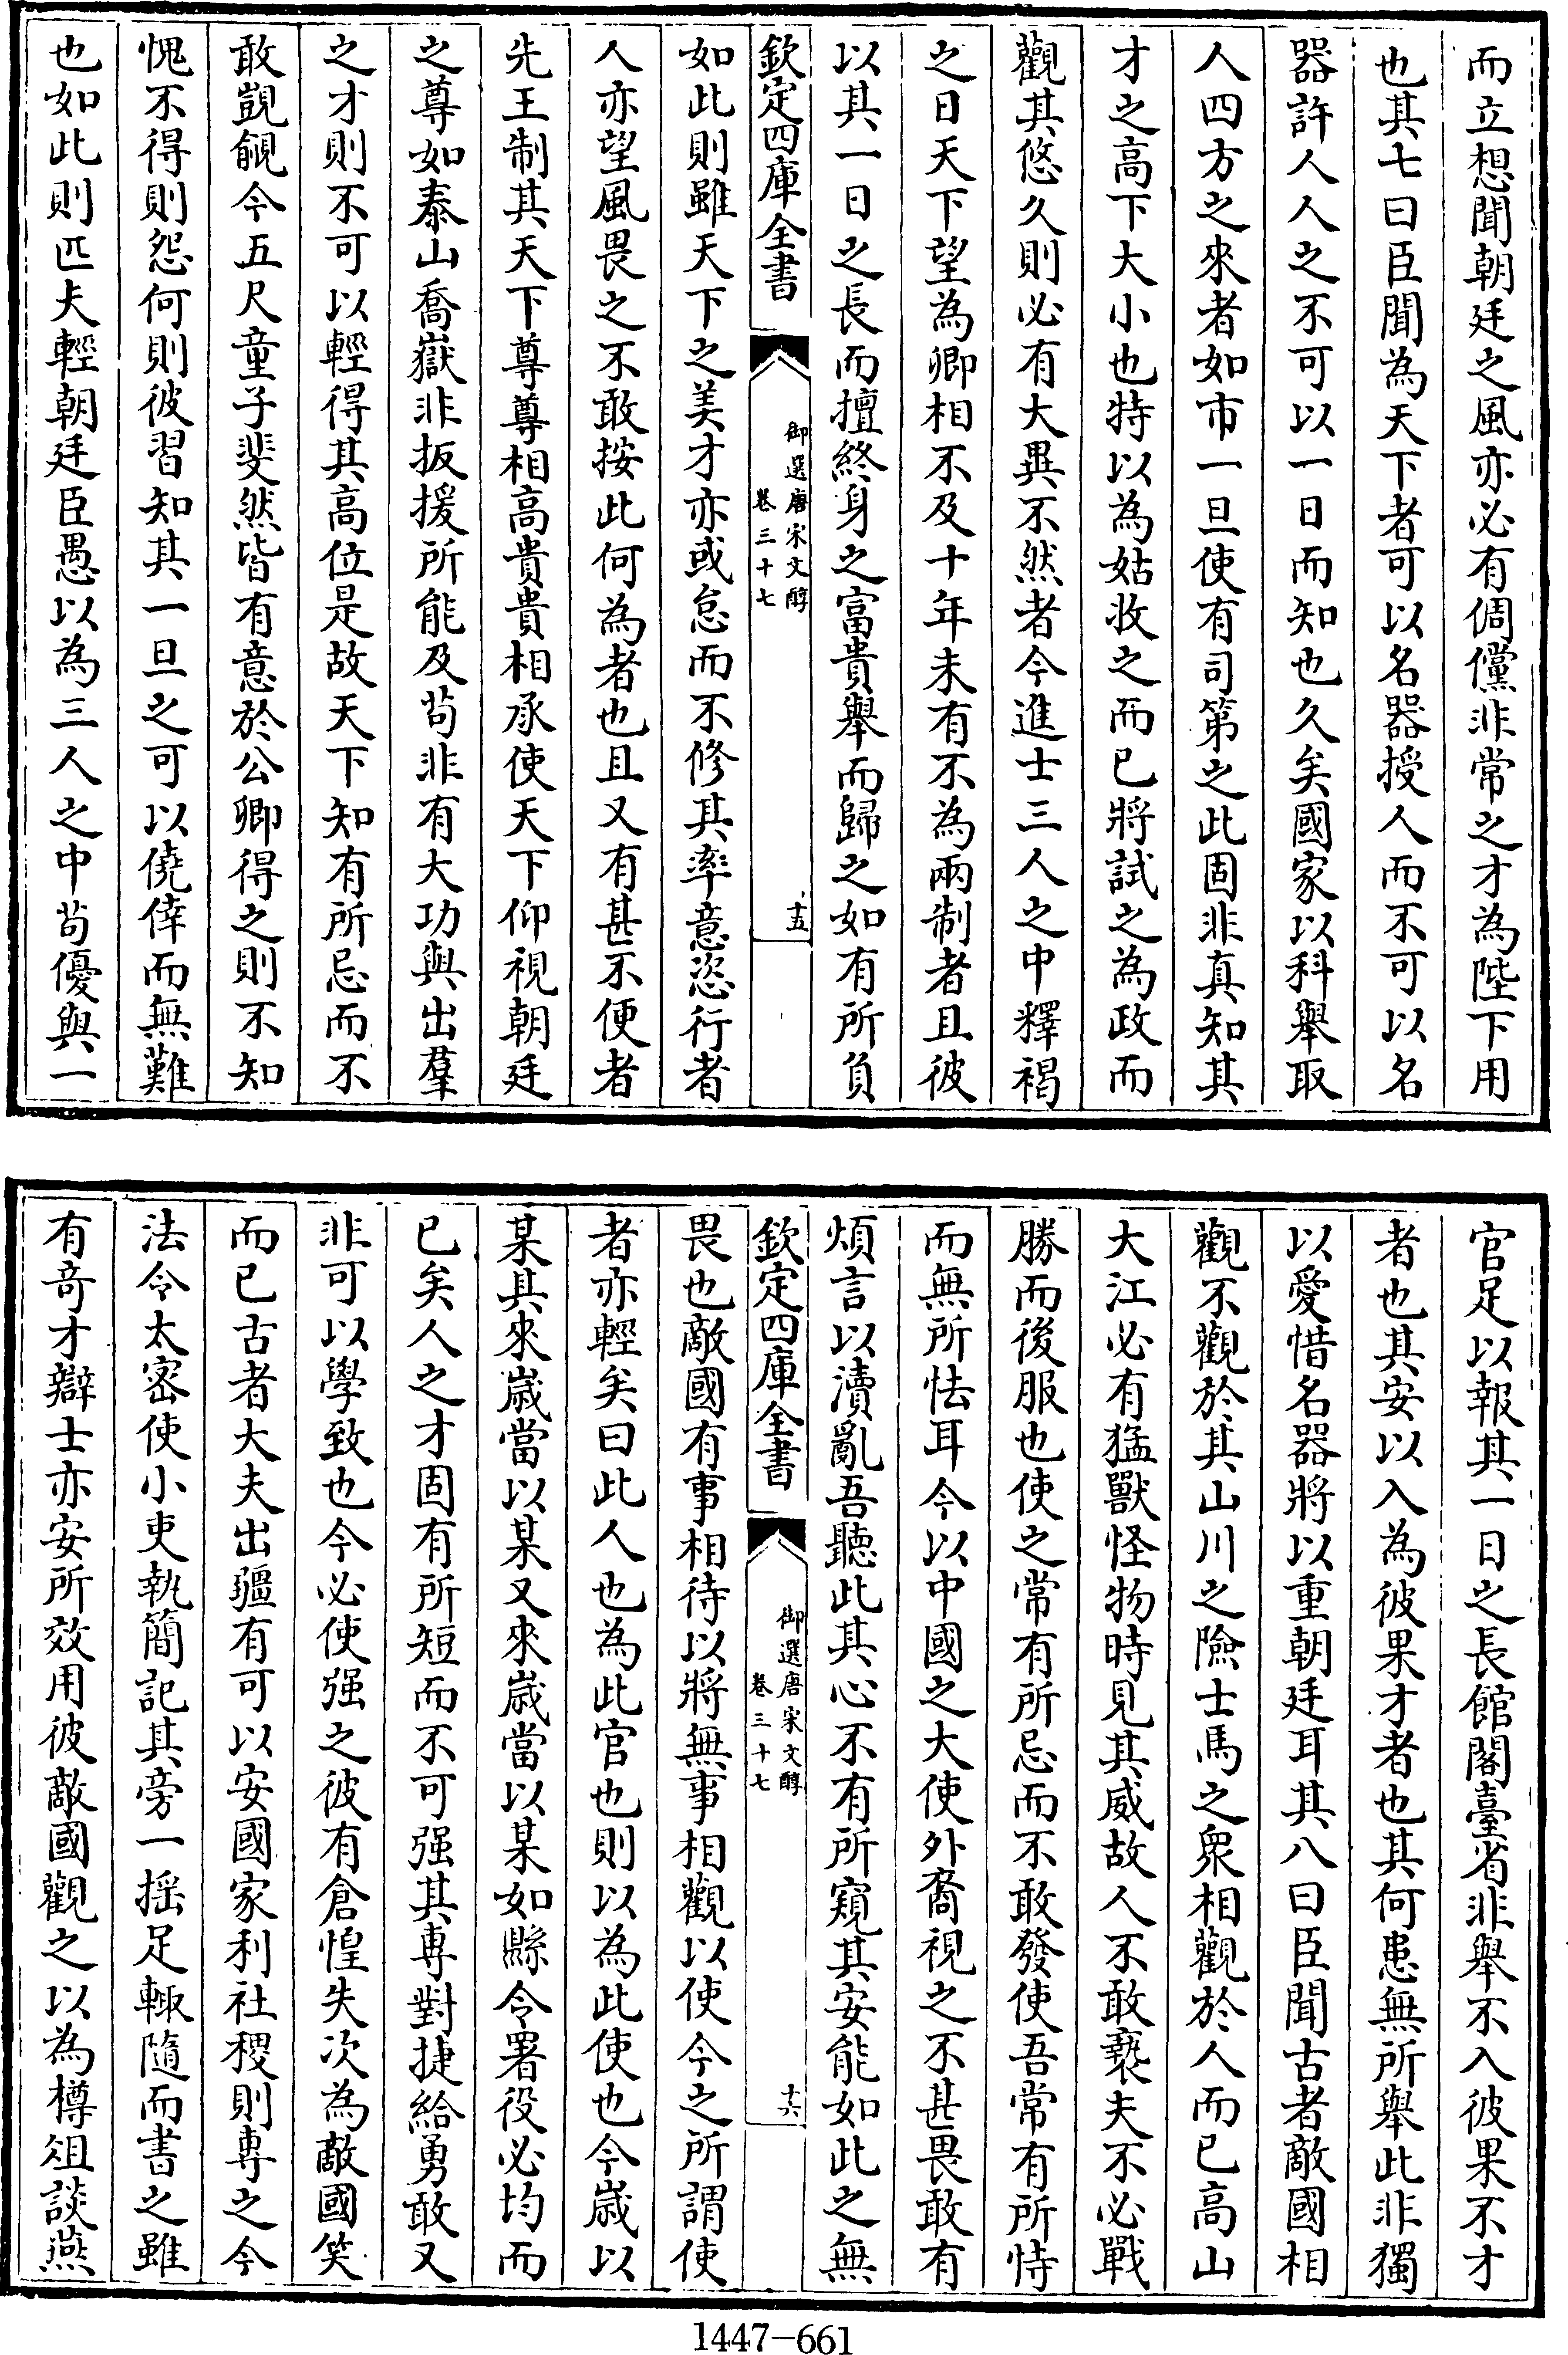 而立想聞朝廷之風亦必有倜儻非常之才為陛下用
也其七曰臣聞為天下者可以名器授人而不可以名
器許人人之不可以一日而知也久矣國家以科舉取
人四方之來者如市一旦使有司第之此固非真知其
才之高下大小也特以為姑收之而已將試之為政而
觀其悠久則必有大異不然者今進士三人之中釋褐
之日天下望為卿相不及十年未有不為兩制者且彼
以其一日之長而擅終身之富貴舉而歸之如有所負
欽定四庫全書
御選唐宋文醇
卷三十七
十五
如此則雖天下之美才亦或怠而不修其率意恣行者
人亦望風畏之不敢按此何為者也且又有甚不便者
先王制其天下尊尊相高貴貴相承使天下仰視朝廷
之尊如泰山喬嶽非扳援所能及苟非有大功與出羣
之才則不可以輕得其高位是故天下知有所忌而不
敢覬覦今五尺童子斐然皆有意於公卿得之則不知
愧不得則怨何則彼習知其一旦之可以僥倖而無難
也如此則匹夫輕朝廷臣愚以為三人之中苟優與一
官足以報其一日之長館閣臺省非舉不入彼果不才
者也其安以入為彼果才者也其何患無所舉此非獨
以愛惜名器將以重朝廷耳其八曰臣聞古者敵國相
觀不觀於其山川之險士馬之衆相觀於人而已高山
大江必有猛獸怪物時見其威故人不敢褻夫不必戰
勝而後服也使之常有所忌而不敢發使吾常有所恃
而無所怯耳今以中國之大使外裔視之不甚畏敢有
煩言以瀆亂吾聽此其心不有所窺其安能如此之無
欽定四庫全書
御選唐宋文醇
卷三十七
十六
畏也敵國有事相待以將無事相觀以使今之所謂使
者亦輕矣曰此人也為此官也則以為此使也今歲以
某其來歲當以某又來歲當以某如縣令署役必均而
已矣人之才固有所短而不可强其專對捷給勇敢又
非可以學致也今必使强之彼有倉惶失次為敵國笑
而已古者大夫出疆有可以安國家利社稷則專之今
法令太密使小吏執簡記其旁一摇足輙隨而書之雖
有奇才辯士亦安所效用彼敵國觀之以為樽俎談燕
1447-661